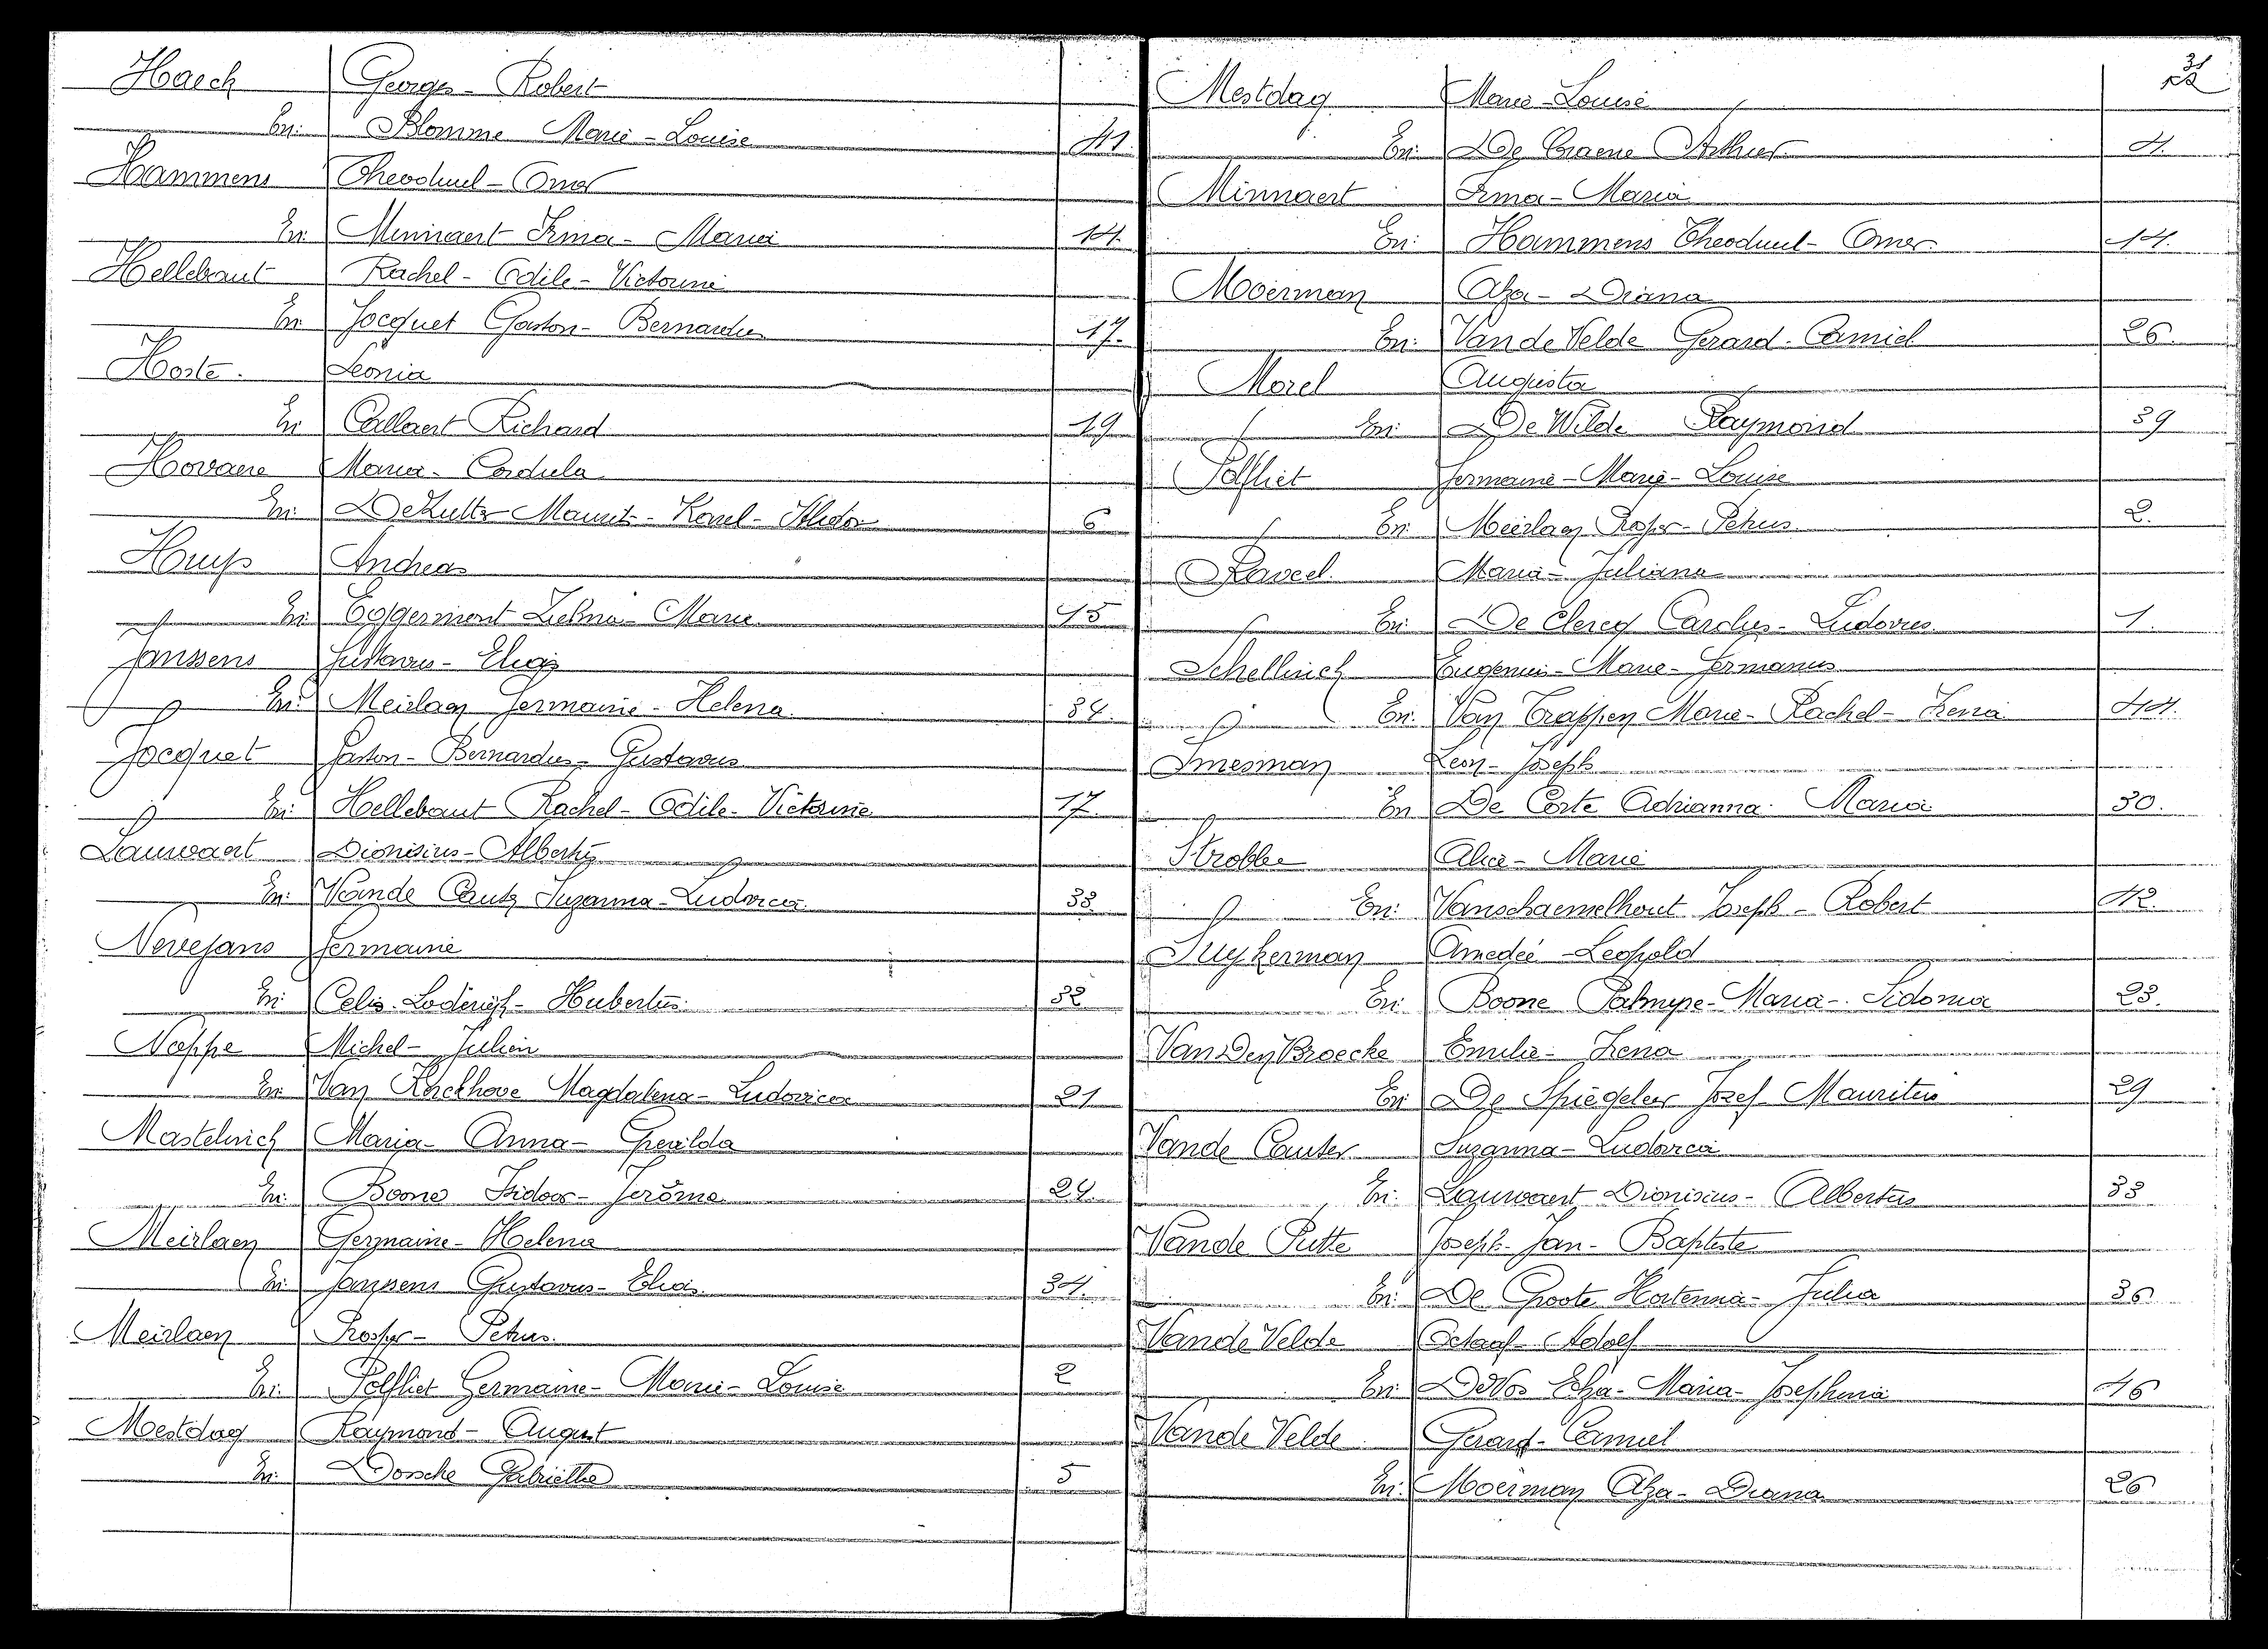 Haeck Georges - Robert
En: Blomme Marie - Louise 41
Hammens Theoduul - Omer
En: Minnaert Irma - Maria 14.
Hellebaut Rachel - Odile - Victorine
En Jocquet Gaston - Bernardus 17.
Hoste. Leonia
En Callaert Richard 19
Hovaere Maria - Cordula
En: De Maurits - Karel - 6
Huys Andreas
En: Eggermont Zelma - Maria 15
Janssens Gustavus - Eligis
En: Meirlaen Germaine - Helena 34.
Jocquet Gaston - Bernardus - Gustavus
En: Hellebaut Rachel - Odile - Victorine 17
Lauwaert Dionisius - Albertus
En: Vande Cauter Suzanna - Ludovica 33
Nevejans Germaine
En: Celis Loderijk - Hubertus 32
Michel - Julien
En: Van Kerckhove Magdalena - Ludovica 21
Mastelinck Maria - Anna -
En: Boone Isidoor - Jerôme 24.
Meirlaen Germaine - Helena
En: Janssens Gustavus - 34.
Meirlaen Prosper - Petrus.
En: Polfliet Germaine - Marie - Louise 2
Mestdag Raymond - August
En: Dossche Gabrielle 5
31
Mestdag Marie - Louise
En: De Craene Arthur 4.
Minnaert Irma - Maria
En: Hammens Theoduul - Omer 14.
Moerman Alza - Diana
En: Van de Velde Gerard - Camiel 26.
Morel Augusta
En: De Wilde Raymond 39
Polfliet Germaine - Marie - Louise
En: Meirlaen Prosper - Petrus 2.
Raveel Maria - Juliana
En: De Clercq Carolus - Ludovicus 1.
Schellinck Eugenius - Marie - Germanus
En: Van Trappen Marie - Rachel - Irena 44.
Smesman Leon - Joseph
En De Corte Adrianna Maria 30.
Strobbe Alice - Marie
En: Vanschaemelhout Joseph - Robert 42.
Suykerman Amedeé - Leopold
En: Boone Palmyre - Maria - Sidonia 23.
Van Den Broecke Emilie - Irena
En: De Spiegeleer Jozef Mauritius 29
Vande Cauter Suzanna - Ludovica
En: Lauwaert Dionisius - Albertus 33
Vande Putte Joseph - Jan - Baptiste
En: De Groote Hortennia - Julia 36
Vande Velde Octaaf - Adolf
En: De Vos Elza - Maria - Josephina 46
Vande Velde Gerard - Camiel
En: Moerman Alza - Diana 26